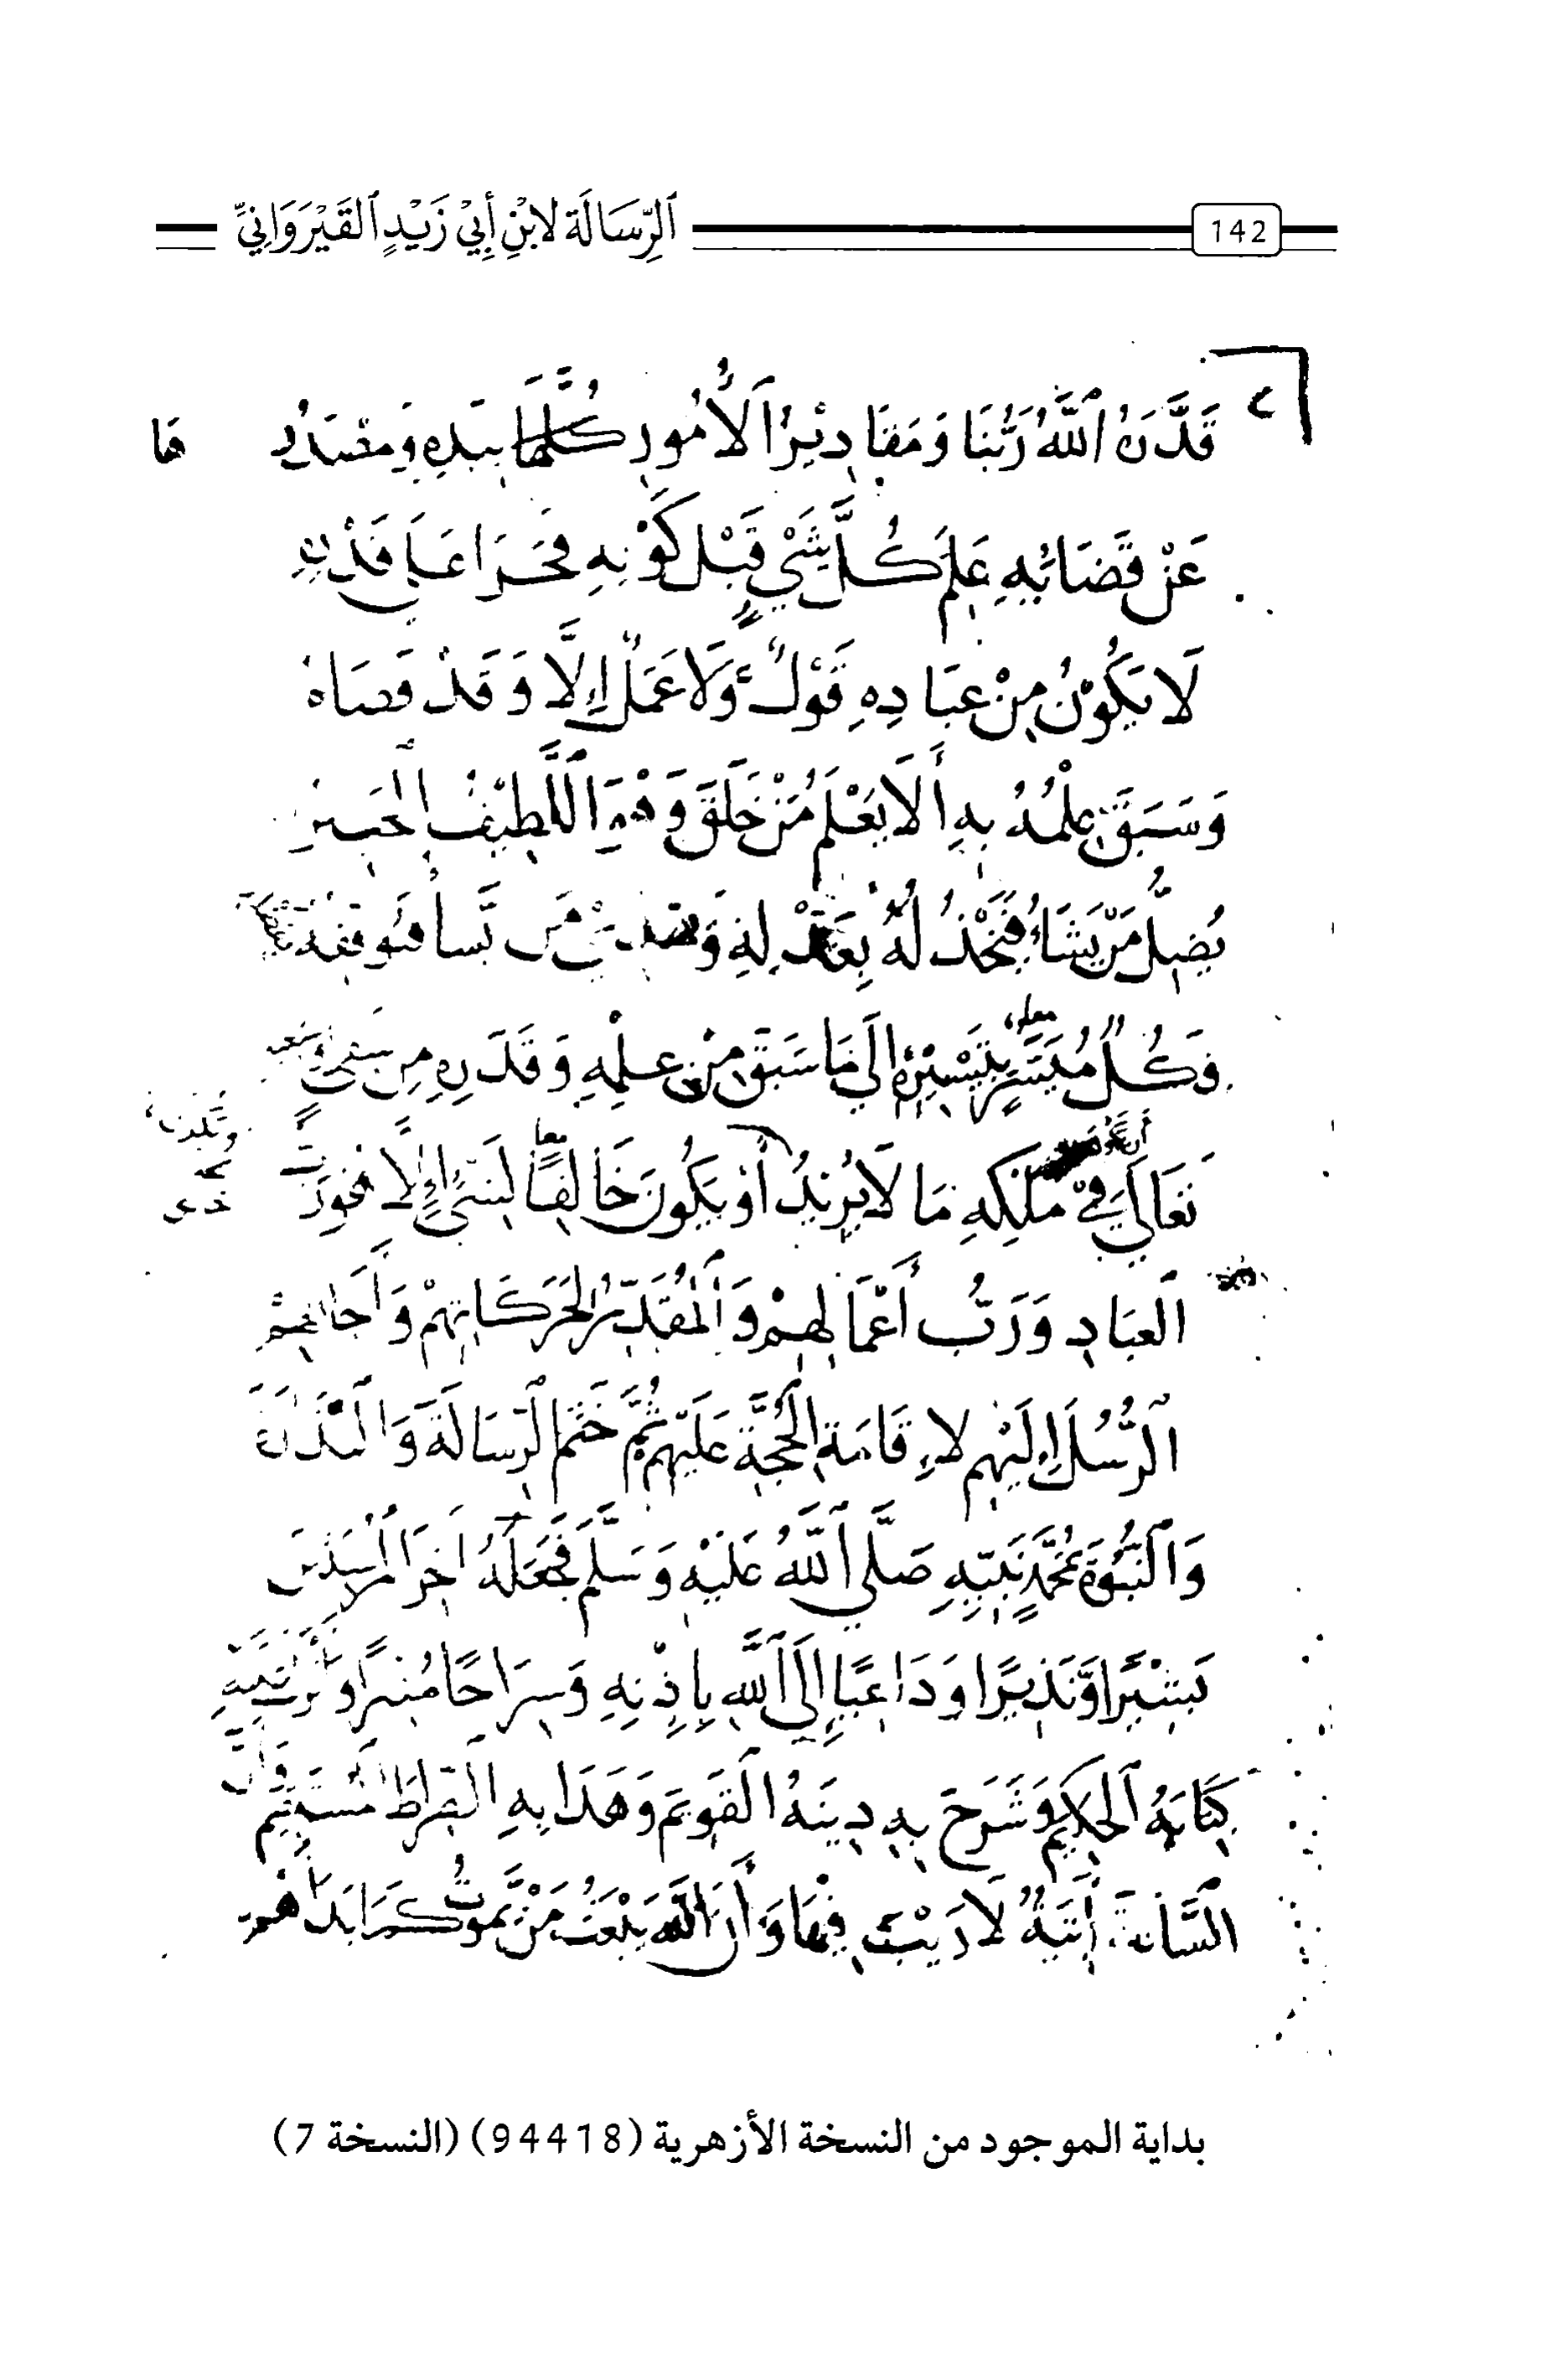 142
ٱلرِّسَالَة لابْنِ أَبِيْ زَيْدٍ ٱلقَيْرَوَانِيِّ
قَدَّرَهُ اللَّهُ رَبُّنَا وَمَقَادِيْرُ الْأُمُورِ كُلُّهَا بِيَدِهِ وَمَصْدَرُ هَا
عَنْ قَضَائِهِ عَلِمَ كُلَّ شَيْءٍ قَبْلَ كَوْنِهِ فَجَرَا عَلَي قَدَرِهِ
لَا يَكُوْنُ مِنْ عِبَادِهِ قَوْلٌ وَلَا عَمَلٌ إِلَّا وَقَدْ قَضَاهُ
وَسَبَقَ عِلْمُهُ بِهِ أَلَا يَعْلَمُ مَنْ خَلَقَ وَهُوَ اللَّطِيْفُ الْخَبِيرُ
يُضِلُّ مَنْ يَشَاءُ فَيَخْذُلُهُ بِعَدْلِهِ وَيَهْدِي مَن يَّشَا فَيُوَفِّقُهُ
فَكُلٌّ مُيَسَّرٌ بِتَيْسِيْرِهِ إِلَي مَا سَبَقَ مِنْ عِلْمِهِ وَقَدَرِهِ مِن شَقِيٍّ
تَعَالَي فِيْ مُلْكِهِ مَا لَا يُرِيْدُ أَوْ يَكُونَ خَالِقًا لِشَيْءٍ إِلَّا هُوَ رَبُّ
الْعِبَادِ وَرَبُّ أَعْمَالِهِمْ وَالْمُقَدِّرُ لِحَرَكَاتِهِمْ وَأَجَالِهِمْ
الرُّسُلَ إِلَيْهِم لِإِقَامَةِ الْحُجَّةِ عَلَيْهِم ثُمَّ خَتَمَ الرِّسَالَةَ وَالنَّذَارَةَ
وَالنُّبُوَّةَ بِمُحَمَّدٍ نَبِيِّهِ صَلَّي اللَّهُ عَلَيْهِ وَسَلَّمَ فَجَعَلَهُ آخِرَ الْمُرْسَلِينَ
بَشِيْرًا وَّنَذِيرًا وَدَاعِيًا إِلَي اللَّهِ بِإِذْنِهِ وَسِرَاجًا مُنِيرًا وَأَنْزَلَ عَلَيْهِ
كِتَابَهُ الْحَكِيمَ وَشَرَحَ بِهِ دِينَهُ الْقَوِيمَ وَهَدَا بِهِ الصِّرَاطَ الْمُسْتَقِيمَ وَأَنَّ
السَّاعَةَ أٰتِيَةٌ لَا رَيْبَ فِيْهَا وَأَنَّ اللَّهَ يَبْعَثُ مَنْ يَّمُوتُ كَمَا بَدَأَهُمْ
بداية الموجود من النسخة الأزهرية (94418) (النسخة 7)